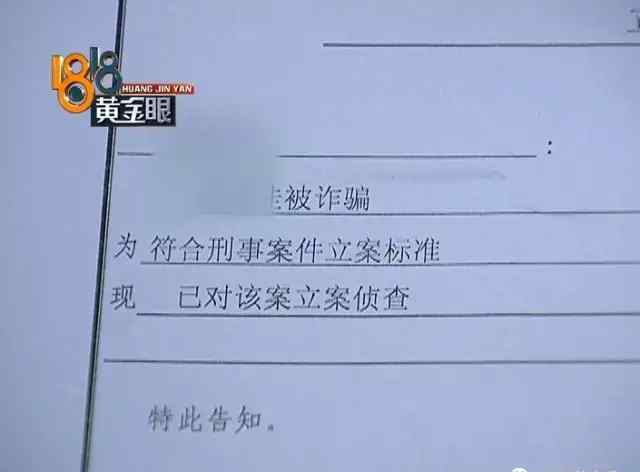 1818
HUANG JIN YAN
黄金眼
:
被诈骗
为 符合刑事案件立案标准
现 已对该案立案侦查
特此告知。